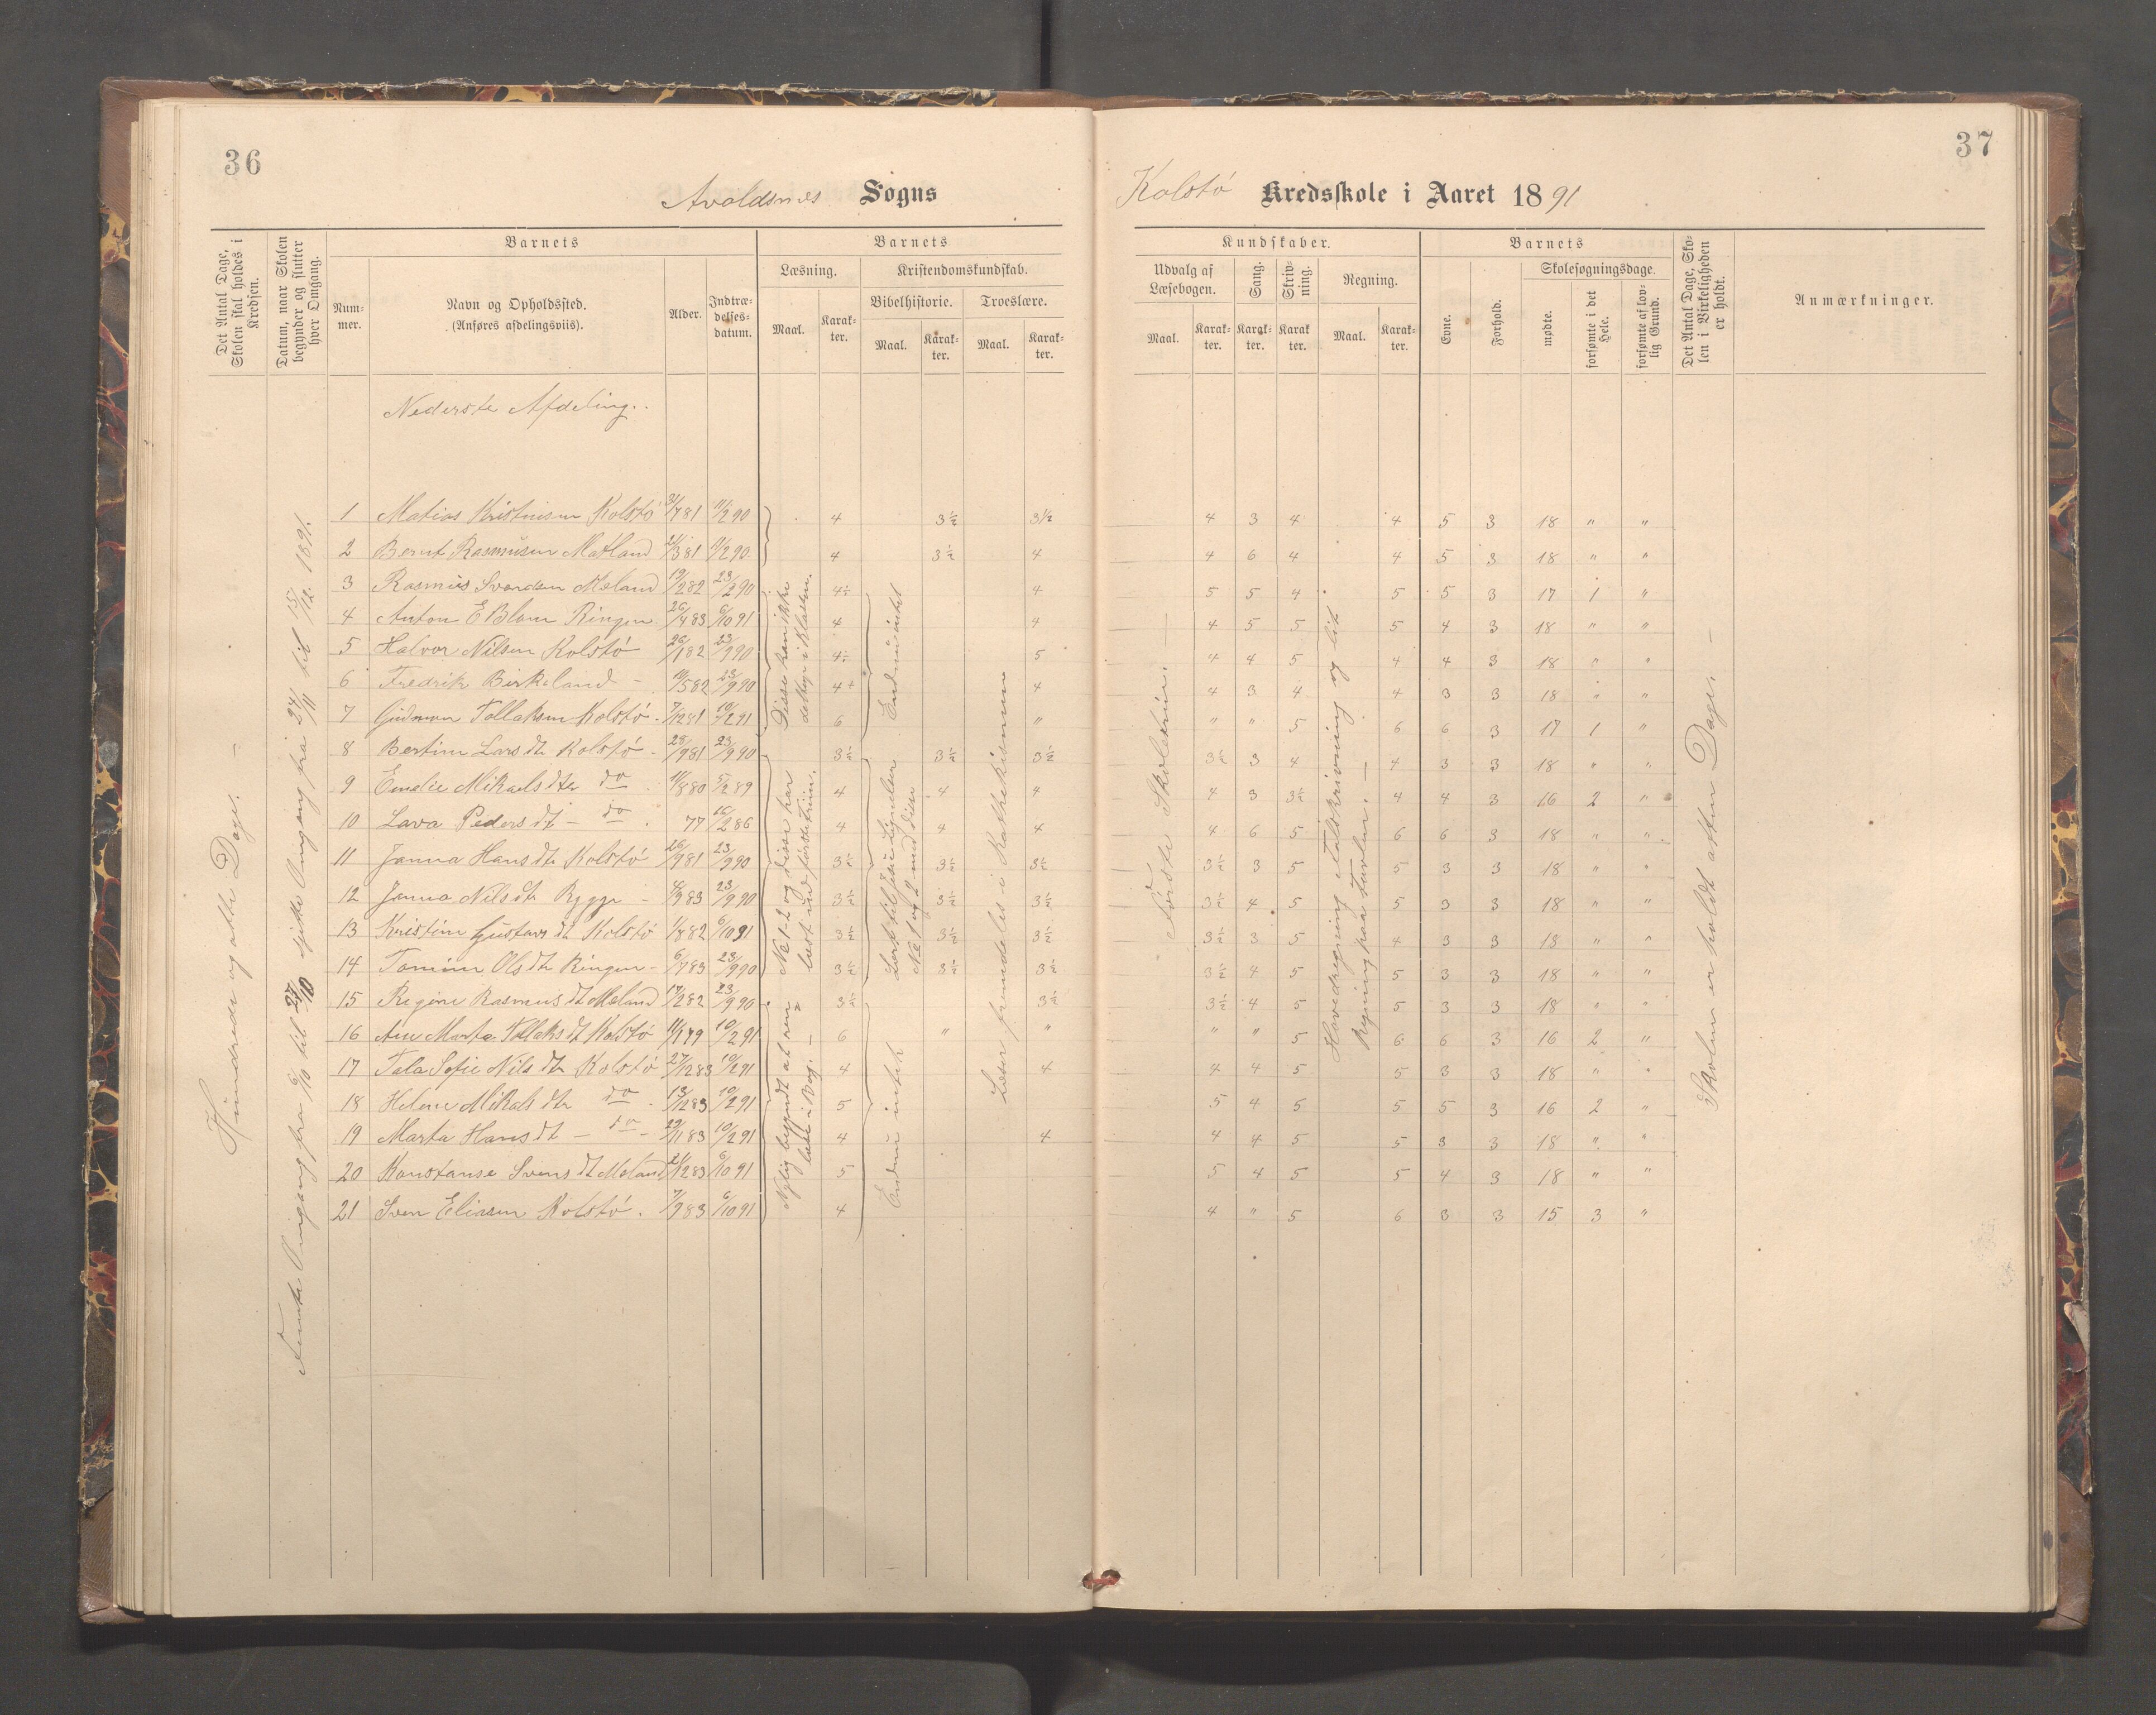 36
Avaldsnes Sogns
Det Antal Dage, Skolen skal holdes i Kredsen.
Datum, naar Skolen begynder og slutter hver Omgang.
Barnets
Nummer.
Navn og Opholdssted.
(Anføres afdelingsviis).
Alder.
Indtrædelsesdatum.
Barnets
Læsning.
Kristendomskundskab.
Bibelhistorie.
Troeslære.
Maal.
Karakter.
Maal.
Karakter.
Maal.
Karakter.
Hundrede og otte Dage. —
Femte Omgang fra 6/10 til 27/10 sjette Omgang fra 24/11 til 15/12. 1891.
Nederste Afdeling.
1 Matias Kristensen Kolstö 31/7 81 11/2 90 4 3½ 3½
2 Bernt Rasmusen Matland 21/3 81 11/2 90 4 3½ 4
3 Rasmus Svendsen Mæland 19/2 82 23/2 90 4÷ 4
4 Anton E Blom Ringen 26/4 83 6/10 91 4 4
5 Halvor Nilsen Kolstö 26/1 82 23/9 90 4÷ 5
6 Fredrik Birkeland — 10/5 82 23/9 90 4+ 4
7 Gudmon Tollaksen Kolstö 7/12 81 10/2 91 6 "
8 Bertine Lars dtr Kolstö 28/9 81 23/9 90 3½ 3½ 3½
9 Emelie Mikaels dter do 10/8 80 5/2 89 4 4 4
10 Lava Peders dt — do 77 16/2 86 4 4 4
11 Janna Hans dtr Kolstö 26/9 81 23/9 90 3½ 3½ 3½
12 Janna Nils dtr Rygge — 4/9 83 23/9 90 3½ 3½ 3½
13 Kristine Gustavs dt Kolstö 1/8 82 6/10 91 3½ 3½ 3½
14 Tomine Ols dtr Ringen — 6/7 83 23/9 90 3½ 3½ 3½
15 Regine Rasmus dt Mæland 17/2 82 23/9 90 3½ 3½
16 Ane Marta Tollaks dt Kolstö 11/1 79 10/2 91 6 " "
17 Tala Sofie Nils dtr Kolstö 27/12 83 10/2 91 4 4
18 Helene Mikals dtr do 13/12 83 10/2 91 5
19 Marta Hans dt — do — 29/11 83 10/2 91 4 4
20 Konstanse Svens dt Mæland 21/12 83 6/10 91 5
21 Sven Eliasen Kolstö. 7/9 83 6/10 91 4
Disse kan ikke deltage i Klassen.
No 1-2 og disse har læst ud første Trin.
Nylig begyndt at læse i Bog. —
Endnu intet
Læst til Jesu Lignelser No 1 og 2 med disse
Endnu intet
Læser fremdeles i Katekismen
37
Kolstö Kredsskole i Aaret 1891
Kundskaber.
Udvalg af Læsebogen.
Sang.
Skrivning.
Regning.
Maal.
Karakter.
Karakter.
Karakter.
Maal.
Karakter.
Barnets
Evne.
Forhold.
Skolesøgningsdage.
mødte.
forsømte i det Hele.
forsømte af lovlig Grund.
Det Antal Dage, Skolen i Virkeligheden er holdt.
Anmærkninger.
4 3 4 4 5 3 18 " "
4 6 4 4 5 3 18 " "
5 5 4 5 5 3 17 1 "
4 5 5 5 4 3 18 " "
4 4 5 4 4 3 18 " "
4 3 4 4 3 3 18 " "
" " 5 6 6 3 17 1 "
3½ 3 4 4 3 3 18 " "
4 3 3½ 4 4 3 16 2 "
4 6 5 6 6 3 18 " "
3½ 3 5 5 3 3 18 " "
3½ 4 5 5 3 3 18 " "
3½ 3 5 4 3 3 18 " "
3½ 4 5 5 3 3 18 " "
3½ 4 5 5 3 3 18 " "
" " 5 6 6 3 16 2 "
4 4 5 5 3 3 18 " "
5 4 5 5 5 3 16 2 "
4 4 5 5 3 3 18 " "
5 4 5 5 4 3 18 " "
4 " 5 6 3 3 15 3 "
Første Skoletrin. —
Hovedregning, Talskrivning og lit Regning paa Tavlen. —
Skolen er holdt atten Dage. —